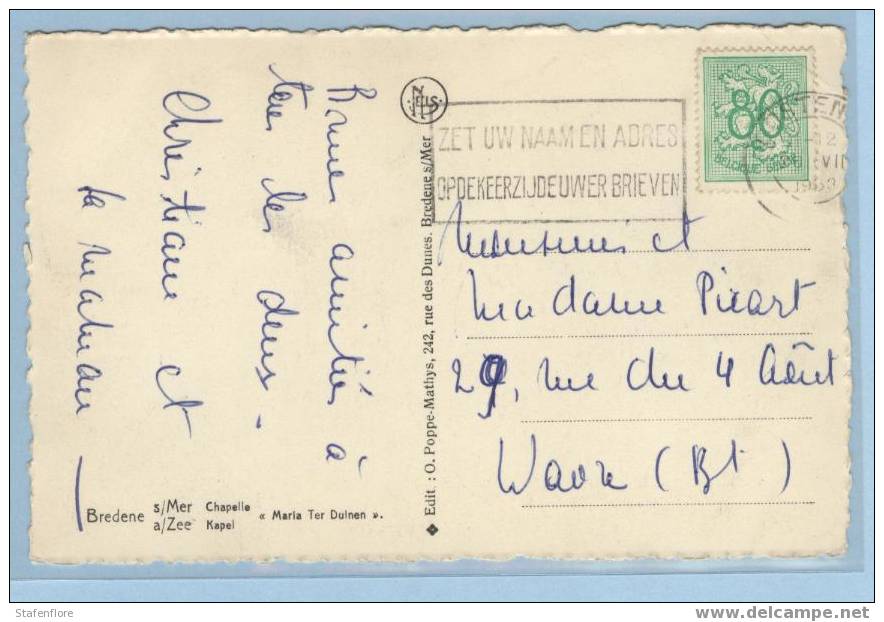 Bonnes amitiés à
tous les deux.
Christiane et
la maman
Bredene
s/Mer Chapelle
a/Zee Kapel
« Maria Ter Duinen ».
Edit. : O. Poppe-Mathys, 242, rue des Dunes. Bredene s/Mer
NELS
ZET UW NAAM EN ADRES
OP DE KEERZIJDE UWER BRIEVEN
80
BELGIQUE-BELGIE
Monsieur et
Madame Picart
29, rue du 4 Août
Wavre (Bt)
Stafenflore
www.delcampe.net